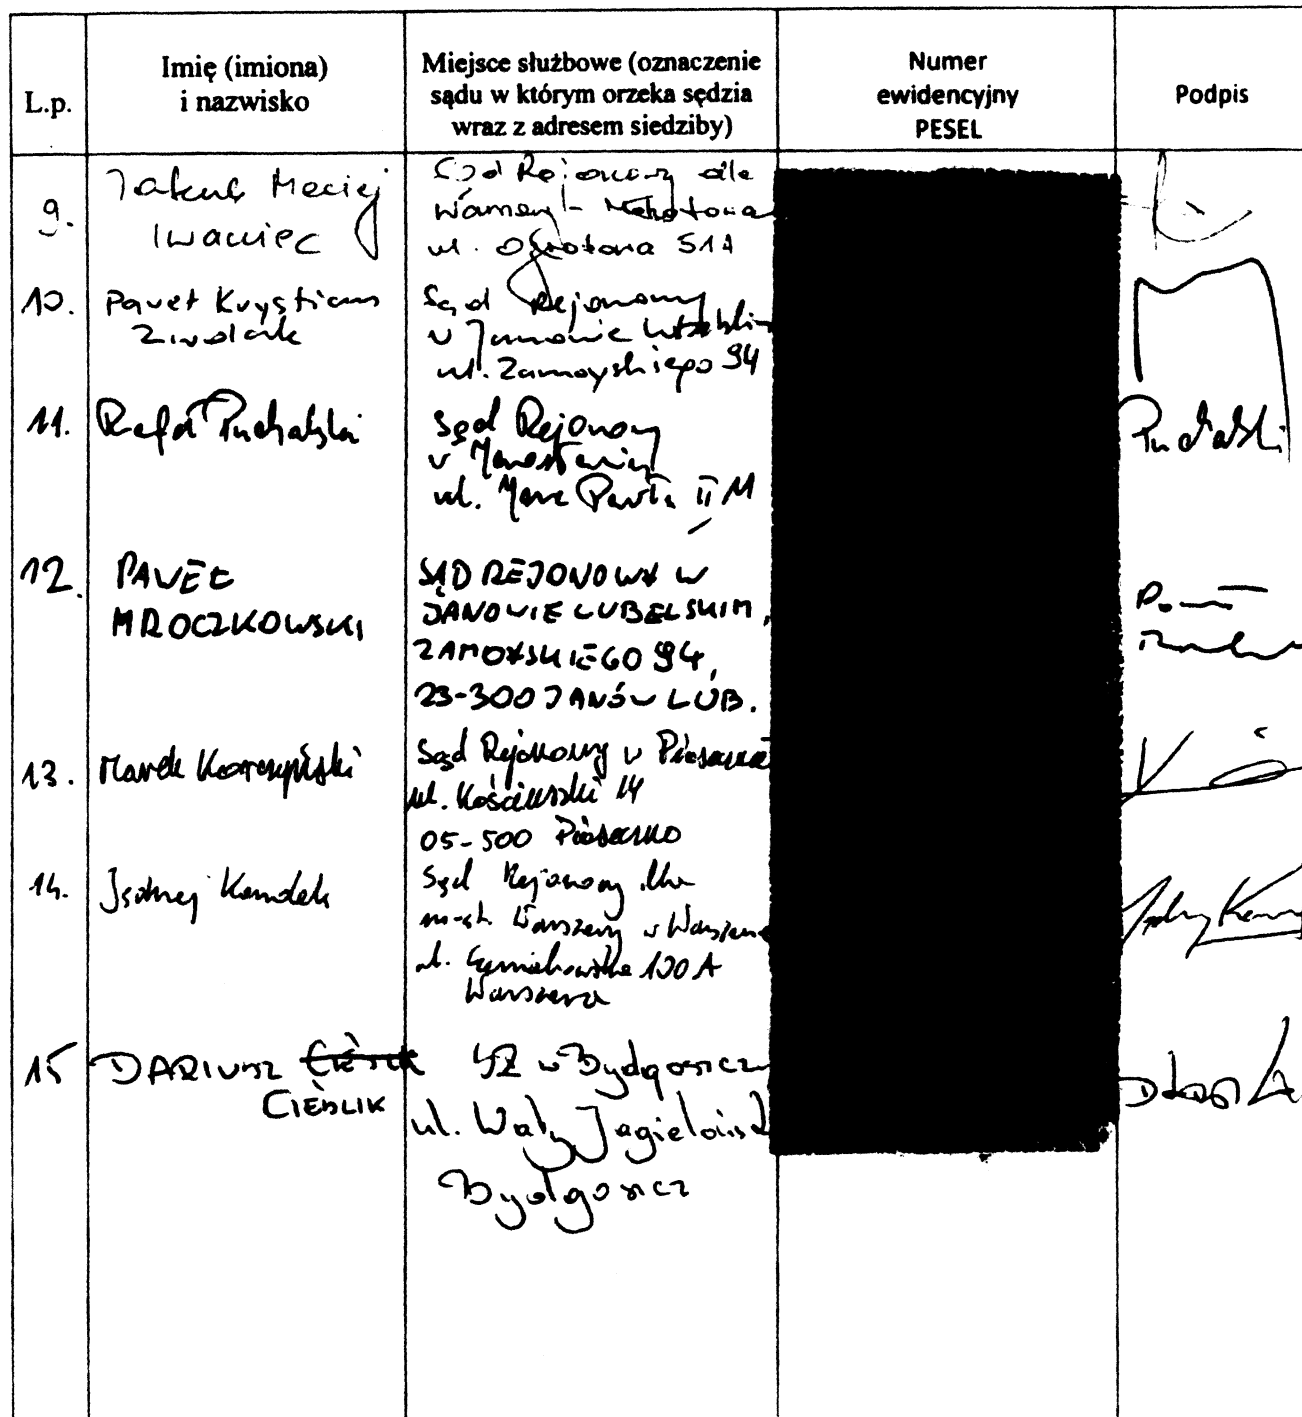 L.p.
Imię (imiona)
i nazwisko
Miejsce służbowe (oznaczenie
sądu w którym orzeka sędzia
wraz z adresem siedziby)
Numer
ewidencyjny
PESEL
Podpis
9.
Jakub Maciej
Iwaniec
Sąd Rejonowy dla
Warszawy-Mokotowa
ul. Ogrodowa 51A
10.
Paweł Krystian
Zwolak
Sąd Rejonowy
w Janowie Lubelskim
ul. Zamoyskiego 94
11.
Rafał Puchalski
Sąd Rejonowy
w Jarosławiu
ul. Jana Pawła II 11
Puchalski
12.
PAWEŁ
MROCZKOWSKI
SĄD REJONOWY W
JANOWIE LUBELSKIM,
ZAMOYSKIEGO 94,
23-300 JANÓW LUB.
13.
Marek
Sąd Rejonowy w Piasecznie
ul. Kościuszki 14
05-500 Piaseczno
14.
Jędrzej Kondek
Sąd Rejonowy dla
m.st. Warszawy w Warszawie
ul. Czerniakowska 100A
Warszawa
15
DARIUSZ
CIEŚLIK
SR w Bydgoszczy
ul. Wały Jagiellońskie
Bydgoszcz